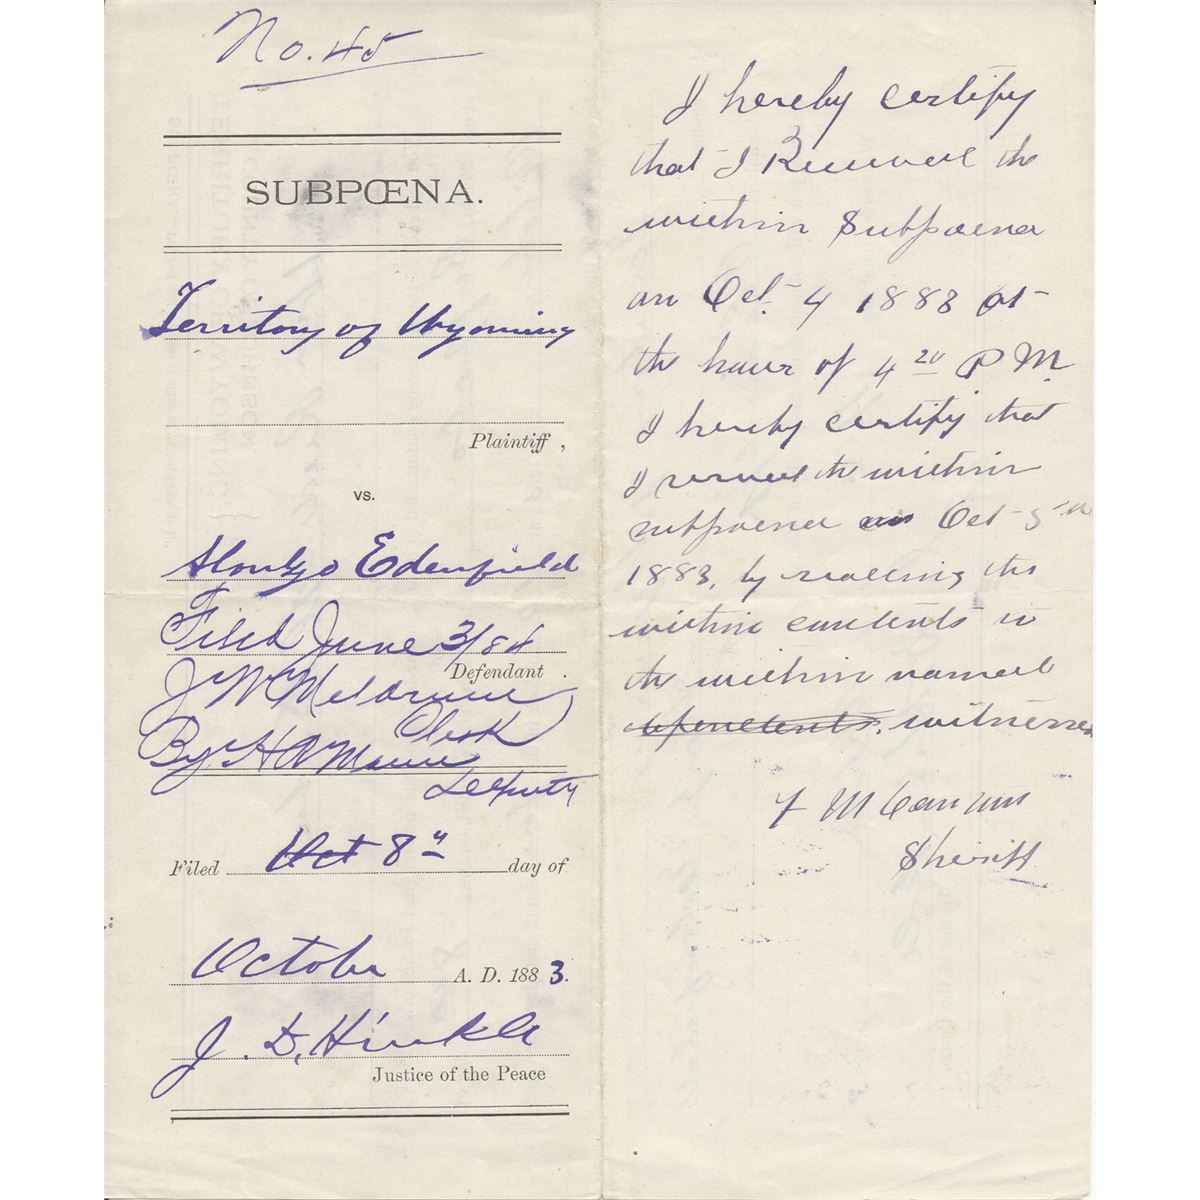 No. 45
SUBPŒNA.
Territory of Wyoming
Plaintiff,
vs.
Alonzo Edenfield
Filed June 3/84
Defendant.
J W Meldrum
Clerk
By H A Mann
Deputy
Filed Oct 8th day of
October A. D. 1883.
J. D. Hinkle
Justice of the Peace
I hereby certify
that I Received the
within Subpoena
on Oct. 4 1883 at
the hour of 4 20 P M.
I hereby certify that
I served the within
subpoena on Oct 5th
1883, by reading the
within contents to
the within named
witnesses
Sheriff